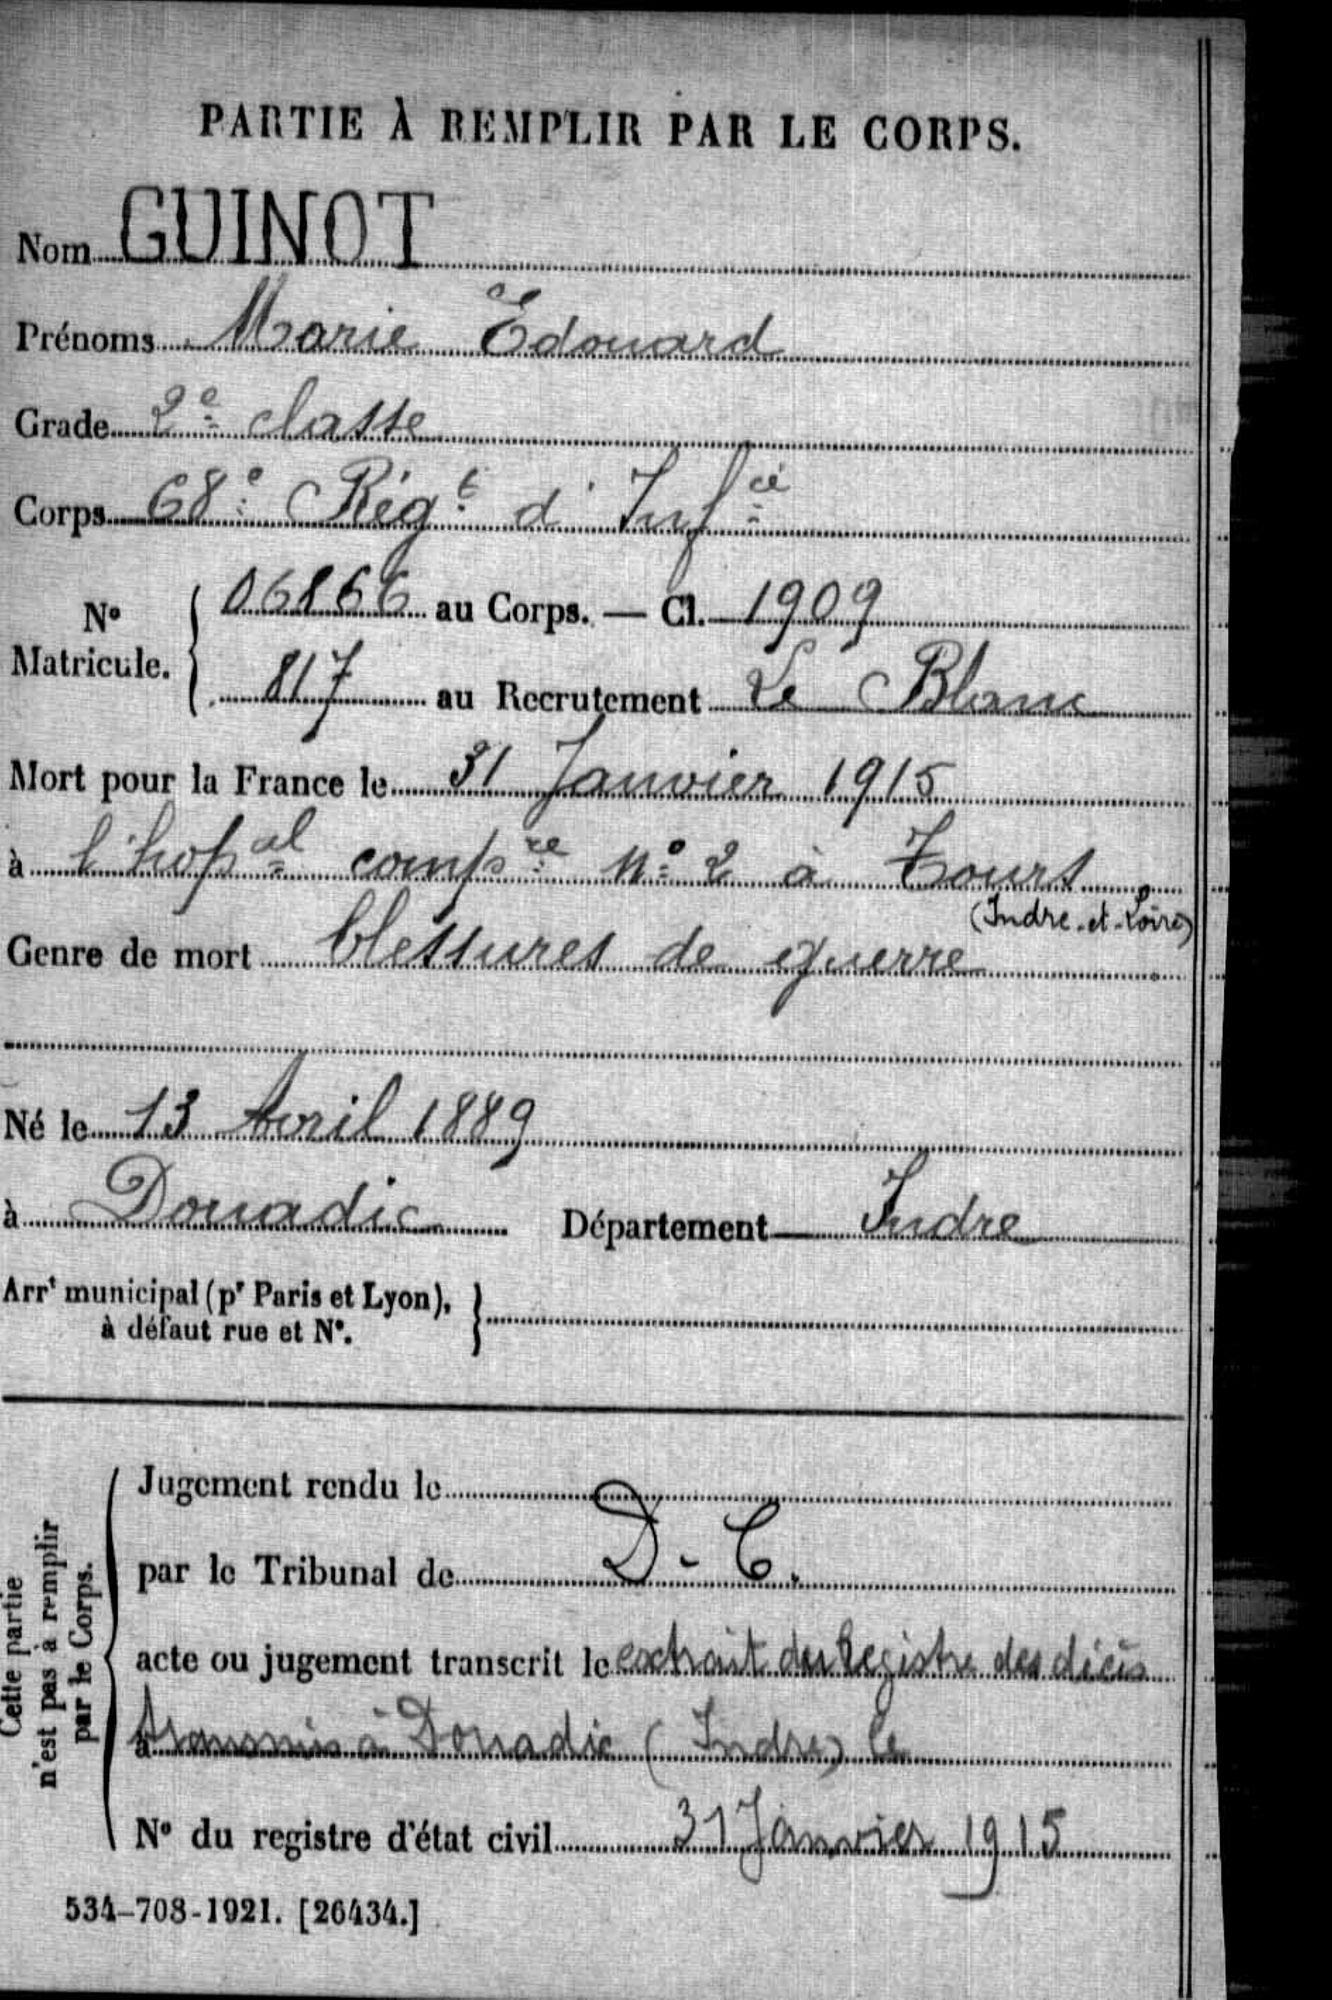 PARTIE À REMPLIR PAR LE CORPS.
Nom GUINOT
Prénoms Marie Edouard
Grade 2e classe
Corps 68e Régt d'Infie
No Matricule. 06866 au Corps. — Cl. 1909
817 au Recrutement Le Blanc
Mort pour la France le 31 Janvier 1915
à l'hopal compre No 2 à Tours
(Indre-et-Loire)
Genre de mort blessures de guerre
Né le 13 Avril 1889
à Douadic Département Indre
Arrt municipal (pr Paris et Lyon),
à défaut rue et No.
Cette partie
n'est pas à remplir
par le Corps.
Jugement rendu le
par le Tribunal de D. C.
acte ou jugement transcrit le extrait du Registre des décès
à transmis à Douadic (Indre) le
No du registre d'état civil 31 Janvier 1915
534-708-1921. [26434.]